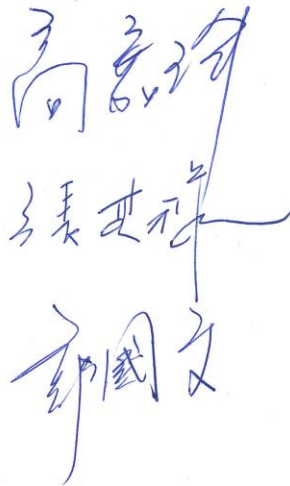 高嘉瑜
張其祿
郭國文